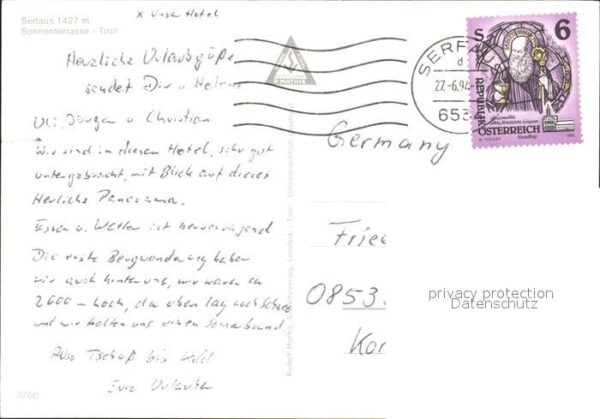 Serfaus 1427 m
Sonnenterrasse - Tirol
x Unser Hotel
Herzliche Urlaubsgrüße
sendet Dir u. Helene
Uli, Jürgen u. Christian
Wir sind in diesem Hotel, sehr gut
untergebracht, mit Blick auf dieses
Herrliche Panorama.
Essen u. Wetter ist hervorragend
Die erste Bergwanderung haben
wir auch hinter uns, wir waren ca
2600 m hoch, da oben lag noch Schnee
und wir holten uns einen Sonnenbrand.
Also Tschüß bis bald
Eure Urlauber
3700
Rudolf Mathis, Landeck - Tirol. Unbefugter
R. MATHIS
SERFAUS
27.-6.94
653
6
REPUBLIK
ÖSTERREICH
Germany
Frie
0853
Kor
privacy protection
Datenschutz